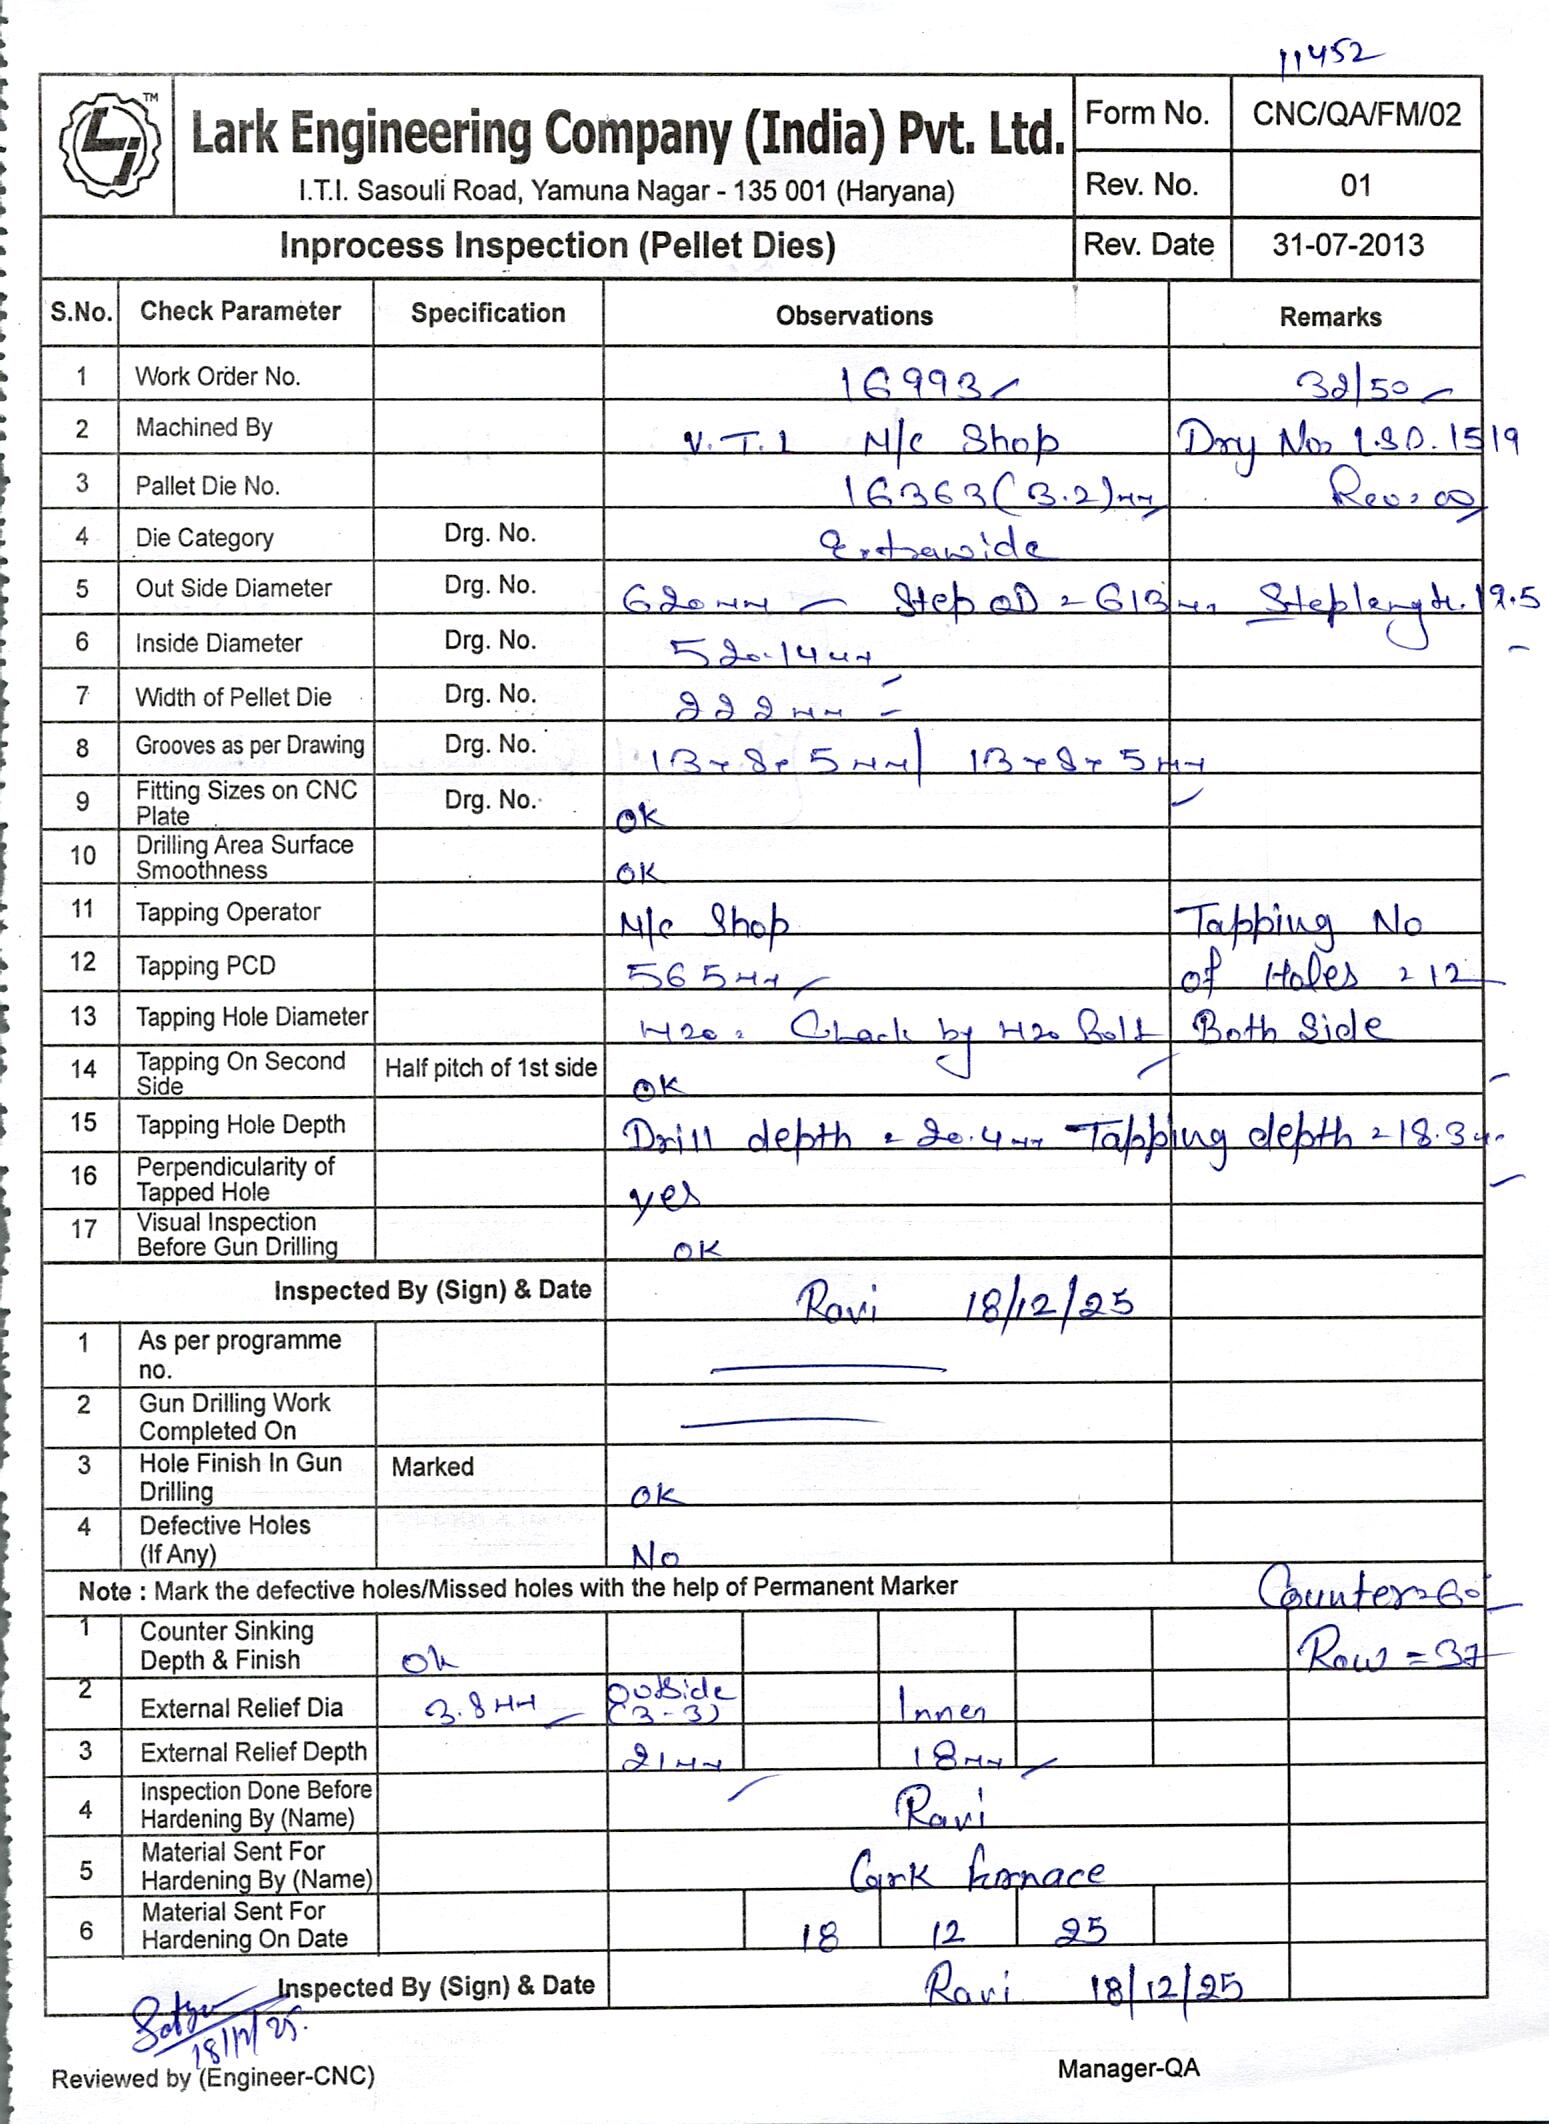 11452
TM
Lark Engineering Company (India) Pvt. Ltd.
I.T.I. Sasouli Road, Yamuna Nagar - 135 001 (Haryana)
Form No. CNC/QA/FM/02
Rev. No. 01
Inprocess Inspection (Pellet Dies) Rev. Date 31-07-2013
S.No. Check Parameter Specification Observations Remarks
1 Work Order No. 16993 32/50
2 Machined By V.T.I M/c Shop Drg No: LSD.1519
3 Pallet Die No. 16363 (3.2)mm Rev: 00
4 Die Category Drg. No. Extrawide
5 Out Side Diameter Drg. No. 620mm Step OD = 613mm Step length. 19.5
6 Inside Diameter Drg. No. 520.14mm
7 Width of Pellet Die Drg. No. 222mm
8 Grooves as per Drawing Drg. No. 13x8x5mm / 13x8x5mm
9 Fitting Sizes on CNC Plate Drg. No. OK
10 Drilling Area Surface Smoothness OK
11 Tapping Operator M/c Shop Tapping No
12 Tapping PCD 565mm of Holes = 12
13 Tapping Hole Diameter M20 = Check by M20 Bolt Both Side
14 Tapping On Second Side Half pitch of 1st side OK
15 Tapping Hole Depth Drill depth = 20.4mm Tapping depth = 18.3mm
16 Perpendicularity of Tapped Hole yes
17 Visual Inspection Before Gun Drilling OK
Inspected By (Sign) & Date Ravi 18/12/25
1 As per programme no.
2 Gun Drilling Work Completed On
3 Hole Finish In Gun Drilling Marked OK
4 Defective Holes (If Any) No
Note : Mark the defective holes/Missed holes with the help of Permanent Marker Counter=60°
1 Counter Sinking Depth & Finish Ok Row = 37
2 External Relief Dia 3.8mm Outside (3-3) Inner
3 External Relief Depth 21mm 18mm
4 Inspection Done Before Hardening By (Name) Ravi
5 Material Sent For Hardening By (Name) Lark furnace
6 Material Sent For Hardening On Date 18 12 25
Inspected By (Sign) & Date Ravi 18/12/25
18/12/25.
Reviewed by (Engineer-CNC) Manager-QA